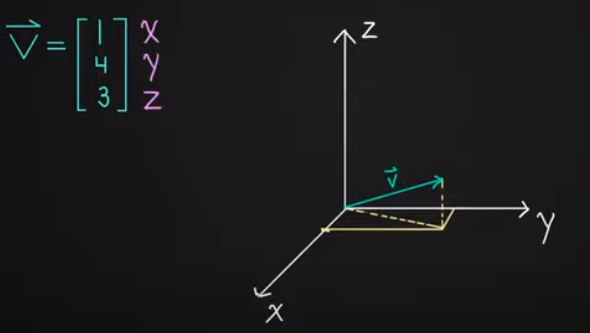 V = [1 4 3] x y z
z
v
y
x